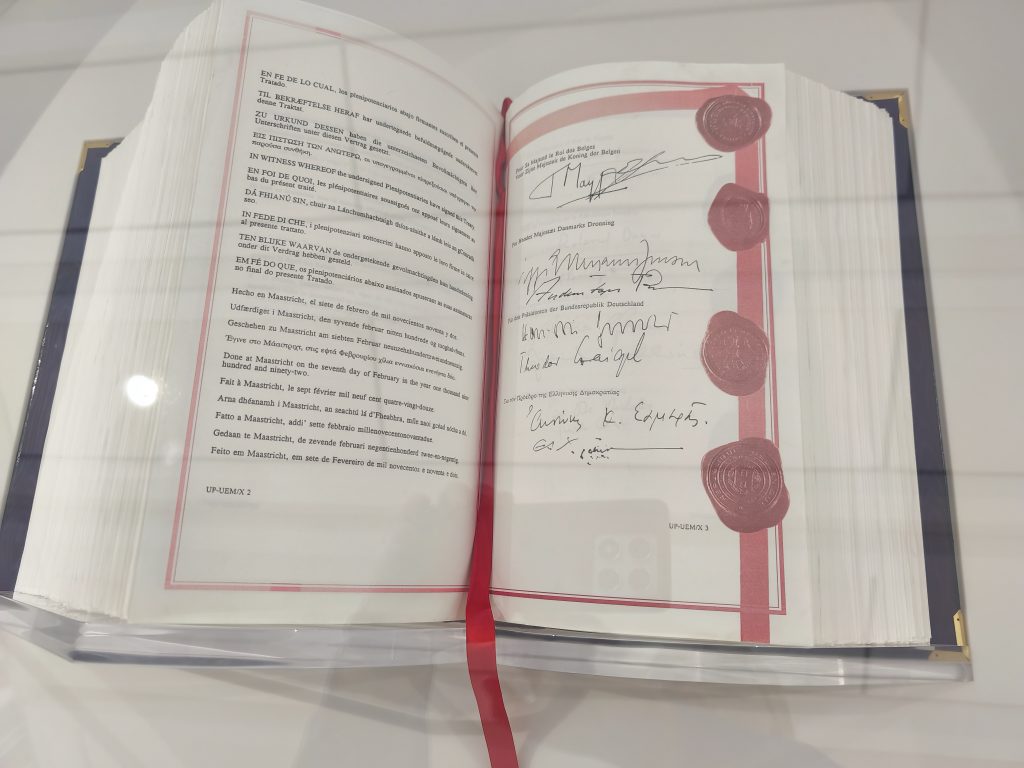 EN FE DE LO CUAL, los plenipotenciarios abajo firmantes suscriben el presente
Tratado.
TIL BEKRÆFTELSE HERAF har undertegnede befuldmægtigede underskrevet
denne Traktat.
ZU URKUND DESSEN haben die unterzeichneten Bevollmächtigten ihre
Unterschriften unter diesen Vertrag gesetzt.
ΕΙΣ ΠΙΣΤΩΣΗ ΤΩΝ ΑΝΩΤΕΡΩ, οι υπογεγραμμένοι πληρεξούσιοι υπέγραψαν την
παρούσα συνθήκη.
IN WITNESS WHEREOF the undersigned Plenipotentiaries have signed this Treaty.
EN FOI DE QUOI, les plénipotentiaires soussignés ont apposé leurs signatures au
bas du présent traité.
DÁ FHIANÚ SIN, chuir na Lánchumhachtaigh thíos-sínithe a lámh leis an gConradh
seo.
IN FEDE DI CHE, i plenipotenziari sottoscritti hanno apposto le loro firme in calce
al presente trattato.
TEN BLIJKE WAARVAN de ondergetekende gevolmachtigden hun handtekening
onder dit Verdrag hebben gesteld.
EM FÉ DO QUE, os plenipotenciários abaixo assinados apuseram as suas assinaturas
no final do presente Tratado.
Hecho en Maastricht, el siete de febrero de mil novecientos noventa y dos.
Udfærdiget i Maastricht, den syvende februar nitten hundrede og tooghalvfems.
Geschehen zu Maastricht am siebten Februar neunzehnhundertzweiundneunzig.
Έγινε στο Μάαστριχτ, στις εφτά Φεβρουαρίου χίλια εννιακόσια ενενήντα δύο.
Done at Maastricht on the seventh day of February in the year one thousand nine
hundred and ninety-two.
Fait à Maastricht, le sept février mil neuf cent quatre-vingt-douze.
Arna dhéanamh i Maastricht, an seachtú lá d'Fheabhra, míle naoi gcéad nócha a dó.
Fatto a Maastricht, addi' sette febbraio millenovecentonovantadue.
Gedaan te Maastricht, de zevende februari negentienhonderd twee-en-negentig.
Feito em Maastricht, em sete de Fevereiro de mil novecentos e noventa e dois.
UP-UEM/X 2
Pour Sa Majesté le Roi des Belges
Voor Zijne Majesteit de Koning der Belgen
For Hendes Majestæt Danmarks Dronning
Für den Präsidenten der Bundesrepublik Deutschland
Theodor Waigel
Για τον Πρόεδρο της Ελληνικής Δημοκρατίας
Αντώνης Κ. Σαμαράς.
UP-UEM/X 3